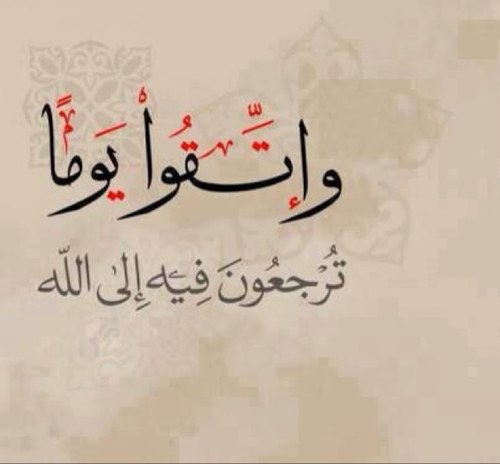 وَإتَّقُواْ يَوْماً
تُرْجَعُونَ فِيهِ إِلىٰ اللّه